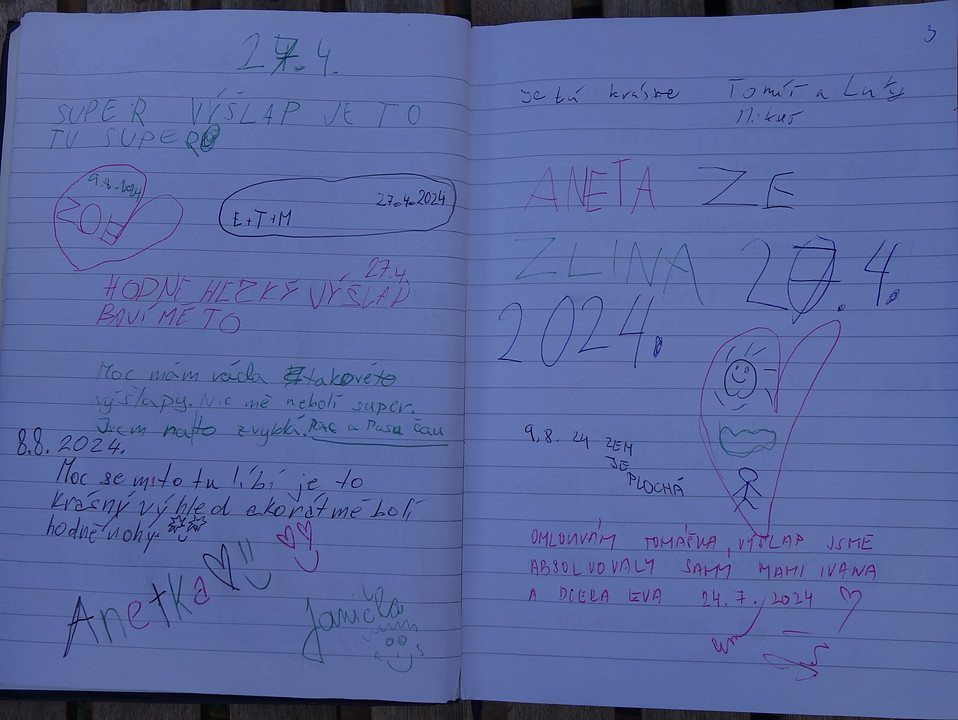 27.4.
SUPER VÝŠLAP JE TO
TU SUPER
9.8.2024
27.4.2024
E+T+M
27.4
HODNĚ HEZKÝ VÝŠLAP
BAVÍ MĚ TO
Moc mám ráda takovéto
výšlapy. Nic mě nebolí super.
Jsem na to zvyklá. Pac a Pusu čau
8.8.2024.
Moc se mi to tu líbí je to
krásný výhled akorát mě bolí
hodně nohy
Anetka
Janička
3
je tu krásne Tomáš a Luky
ANETA ZE
ZLINA 27.4.
2024.
9.8.24 ZEM
JE
PLOCHÁ
OMLOUVÁM TOMÁŠKA, VÝŠLAP JSME
ABSOLVOVALY SAMY MAMI IVANA
A DCERA EVA 24.7.2024